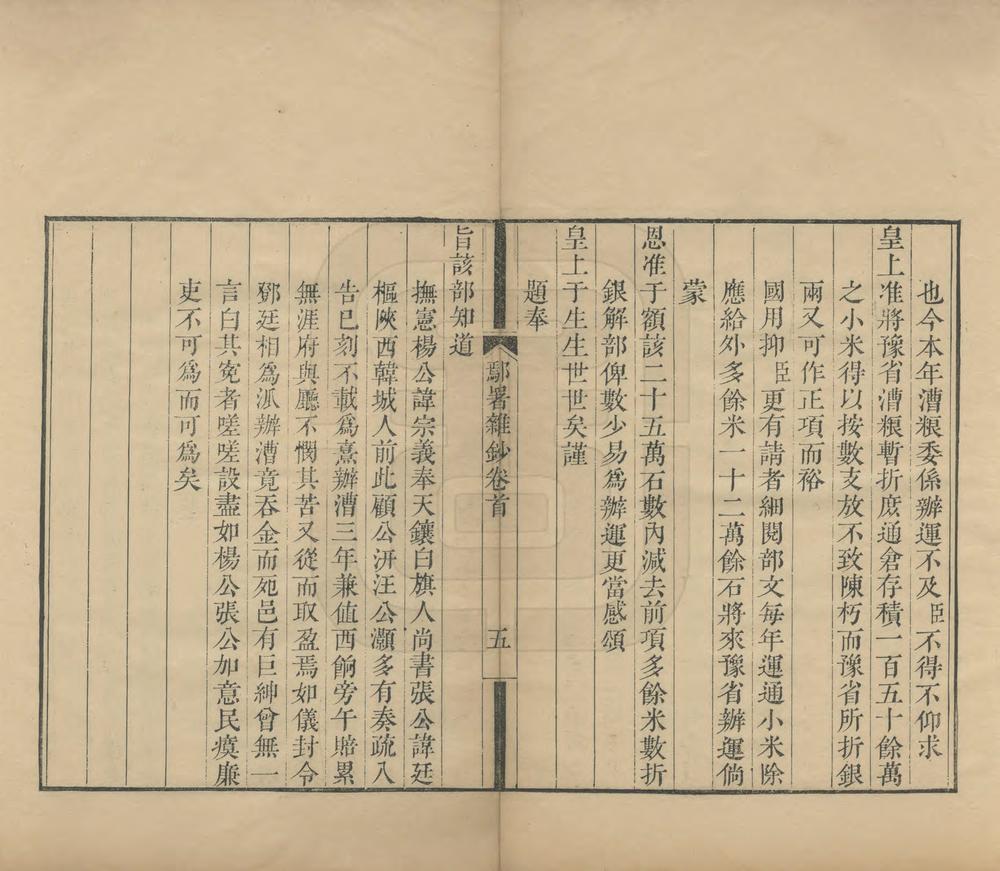 也今本年漕粮委係辦運不及臣不得不仰求
皇上准將豫省漕粮暫折庶通倉存積一百五十餘萬
之小米得以按數支放不致陳朽而豫省所折銀
兩又可作正項而裕
國用抑臣更有請者細閱部文每年運通小米除
應給外多餘米一十二萬餘石將來豫省辦運倘
蒙
恩准于額該二十五萬石數內減去前項多餘米數折
銀解部俾數少易爲辦運更當感頌
皇上于生生世世矣謹
題奉
鄢署雜鈔卷首
五
旨該部知道
撫憲楊公諱宗義奉天鑲白旗人尚書張公諱廷
樞陝西韓城人前此顧公汧汪公灝多有奏疏入
告已刻不載爲熹辦漕三年兼值西餉旁午賠累
無涯府與廳不憫其苦又從而取盈焉如儀封令
鄧廷相爲派辦漕竟吞金而死邑有巨紳曾無一
言白其寃者嗟嗟設盡如楊公張公加意民瘼廉
吏不可爲而可爲矣